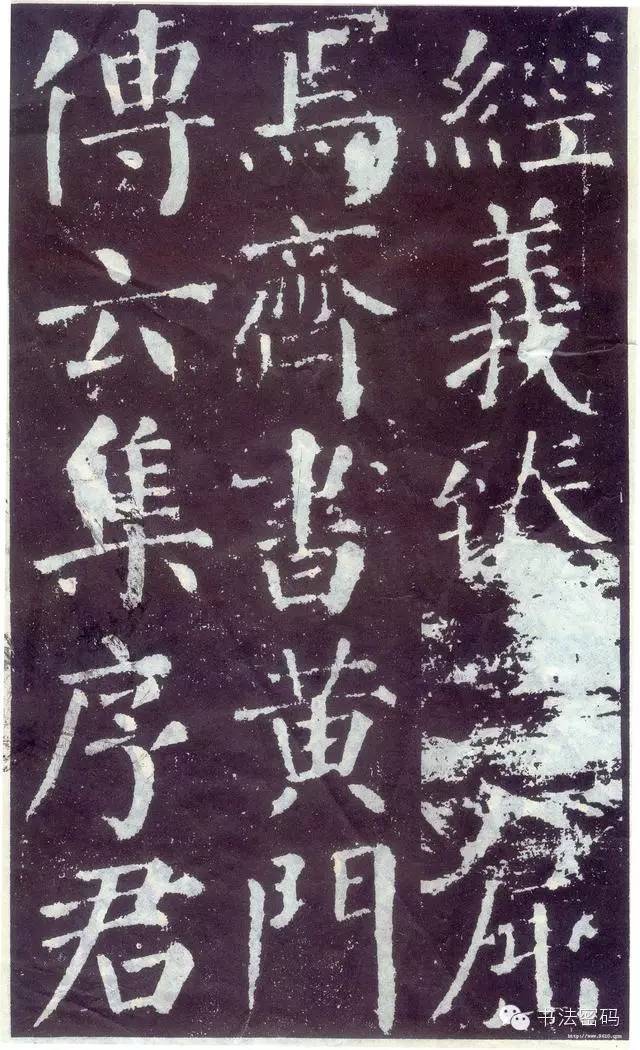 經義
焉齊書黃門
傳六集序君
书法密码